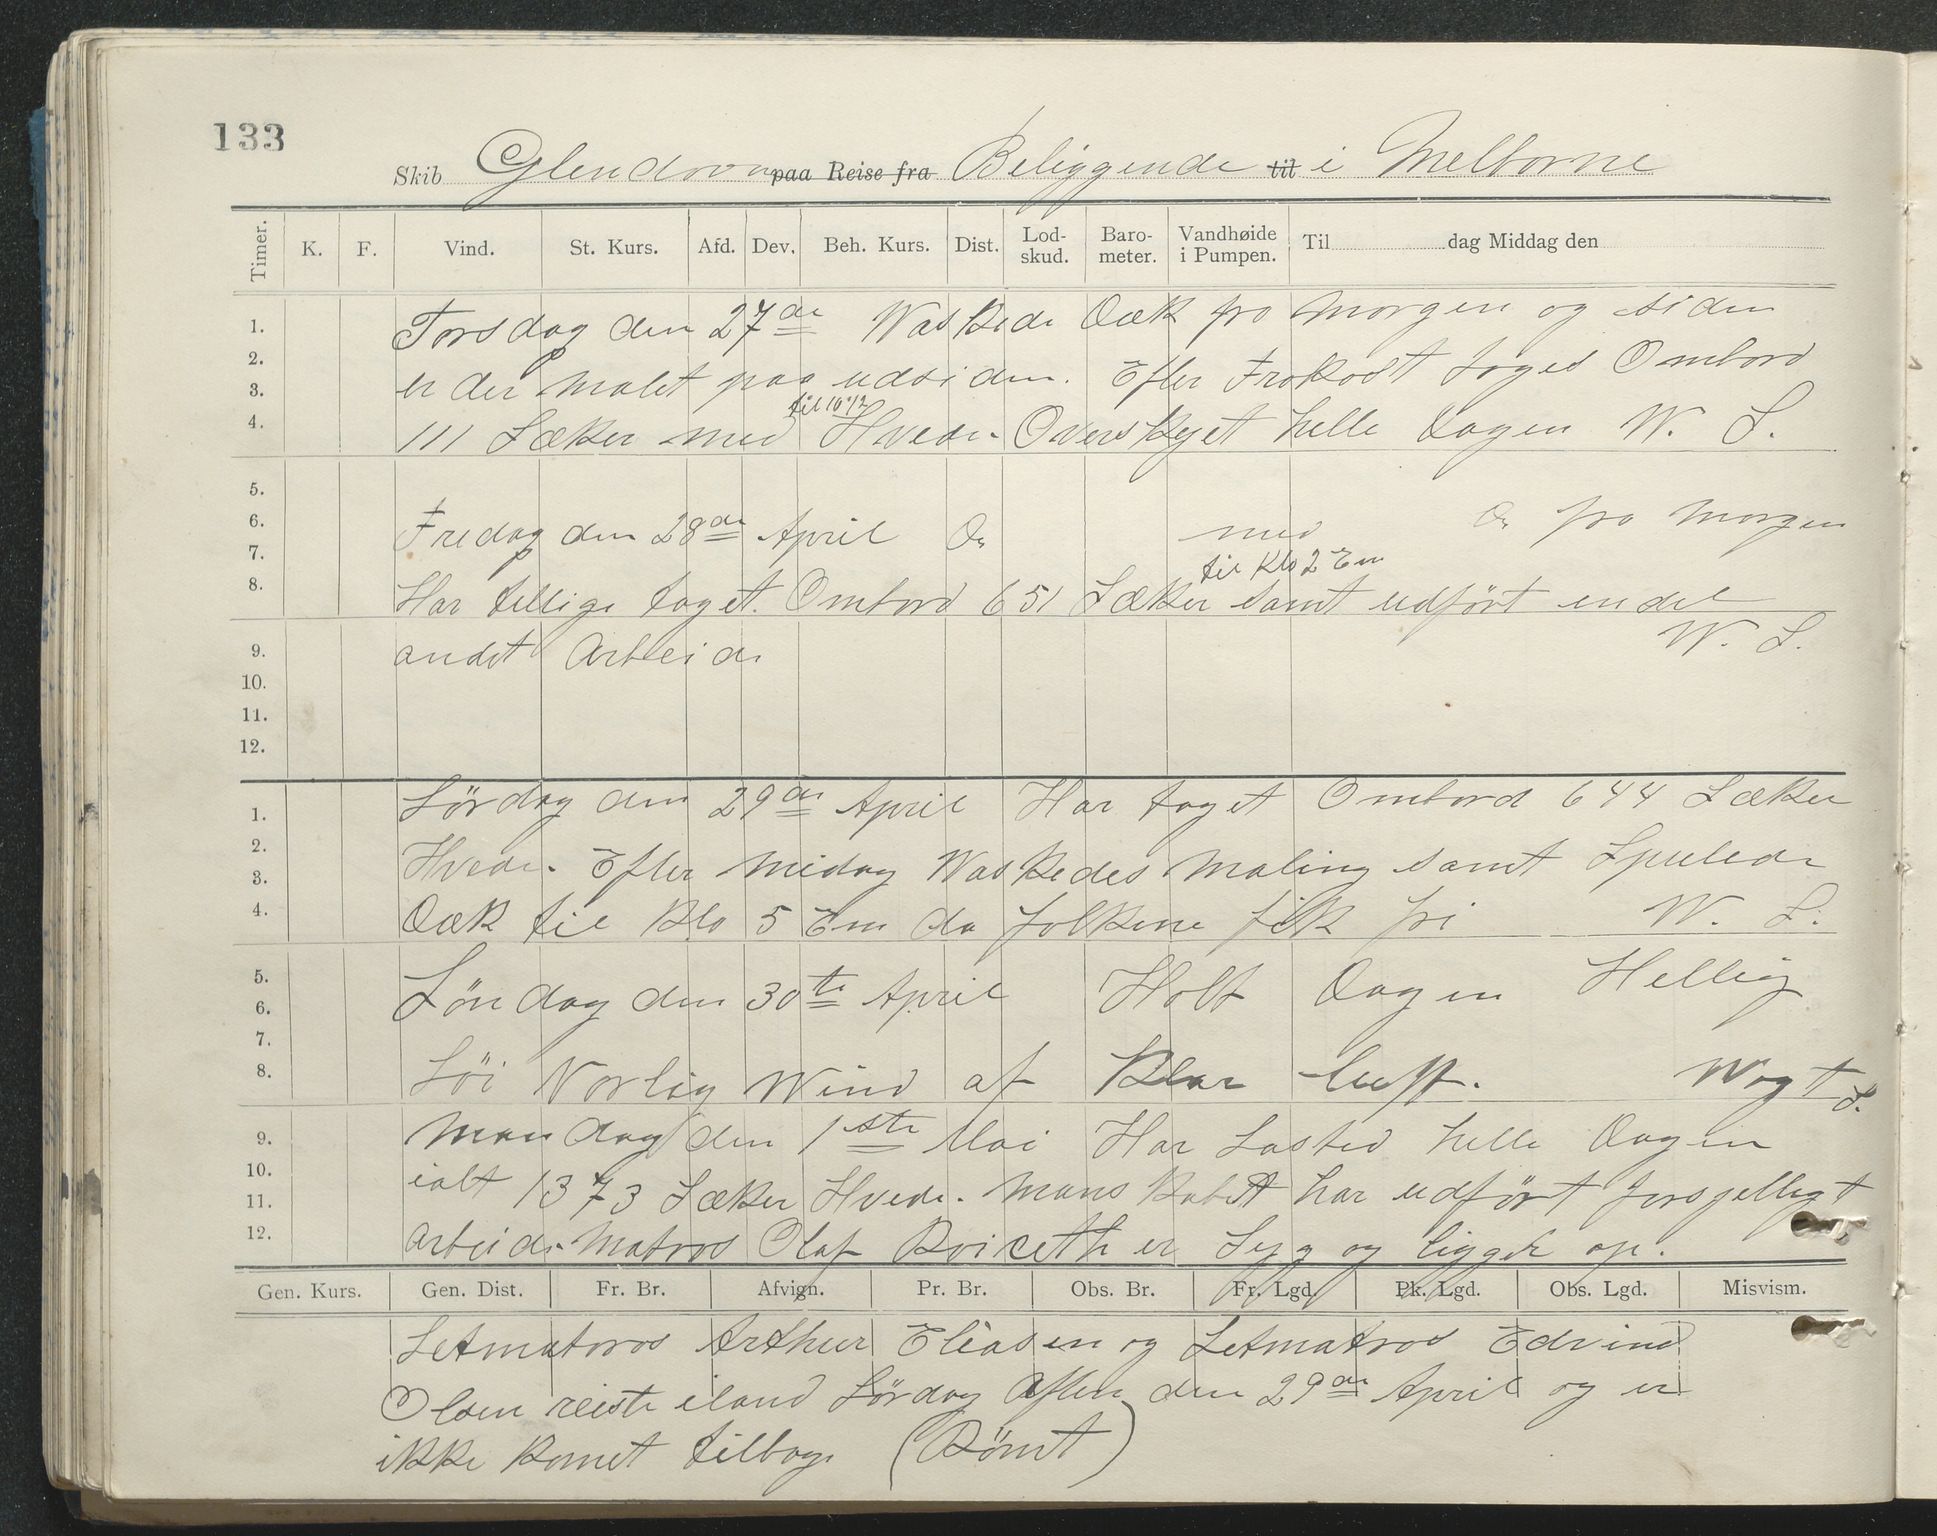 133
Skib Glendovn paa Reise fra Beliggende til i Melborne
Timer. K. F. Vind. St. Kurs. Afd. Dev. Beh. Kurs. Dist. Lod-skud. Baro-meter. Vandhøide i Pumpen. Til dag Middag den
1. Torsdag den 27de Waskede Dæk fra Morgen og siden
2. er der Malet paa udsiden. Efter Frokost toges Ombord
3.
til 10 1/2
4. 111 Sæker med Hvede. Overskyet helle Dagen W. S.
5.
6. Fredag den 28de April Do med Do fra Morgen
7.
til Klo 2 Em
8. Har tillige taget Ombord 651 Sæker samt udført endel
9. andet Arbeide W. S.
10.
11.
12.
1. Lørdag den 29de April Har taget Ombord 644 Sæker
2. Hvede. Efter Midag Waskedes Maling samt Spulede
3.
4. Dæk til Klo 5 Em da folkene fik fri W. S.
5. Søndag den 30te April Holt Dagen Hellig
6.
7.
8. Løi Norlig Wind af Klar luft. Wagt S.
9. Mandag den 1ste Mai Har Lasted helle Dagen
10. ialt 1373 Sæker Hvede. Manskabet har udført forsjelligt
11.
12. Arbeide. Matros Olaf er Syg og ligger op.
Gen. Kurs. Gen. Dist. Fr. Br. Afvign. Pr. Br. Obs. Br. Fr. Lgd. Pk. Lgd. Obs. Lgd. Misvism.
Letmatoros Arthur Eliasen og Letmatros Edvind
Olsen reiste iland Lørdag Aften den 29de April og er
ikke komet tilbage (Rømt)